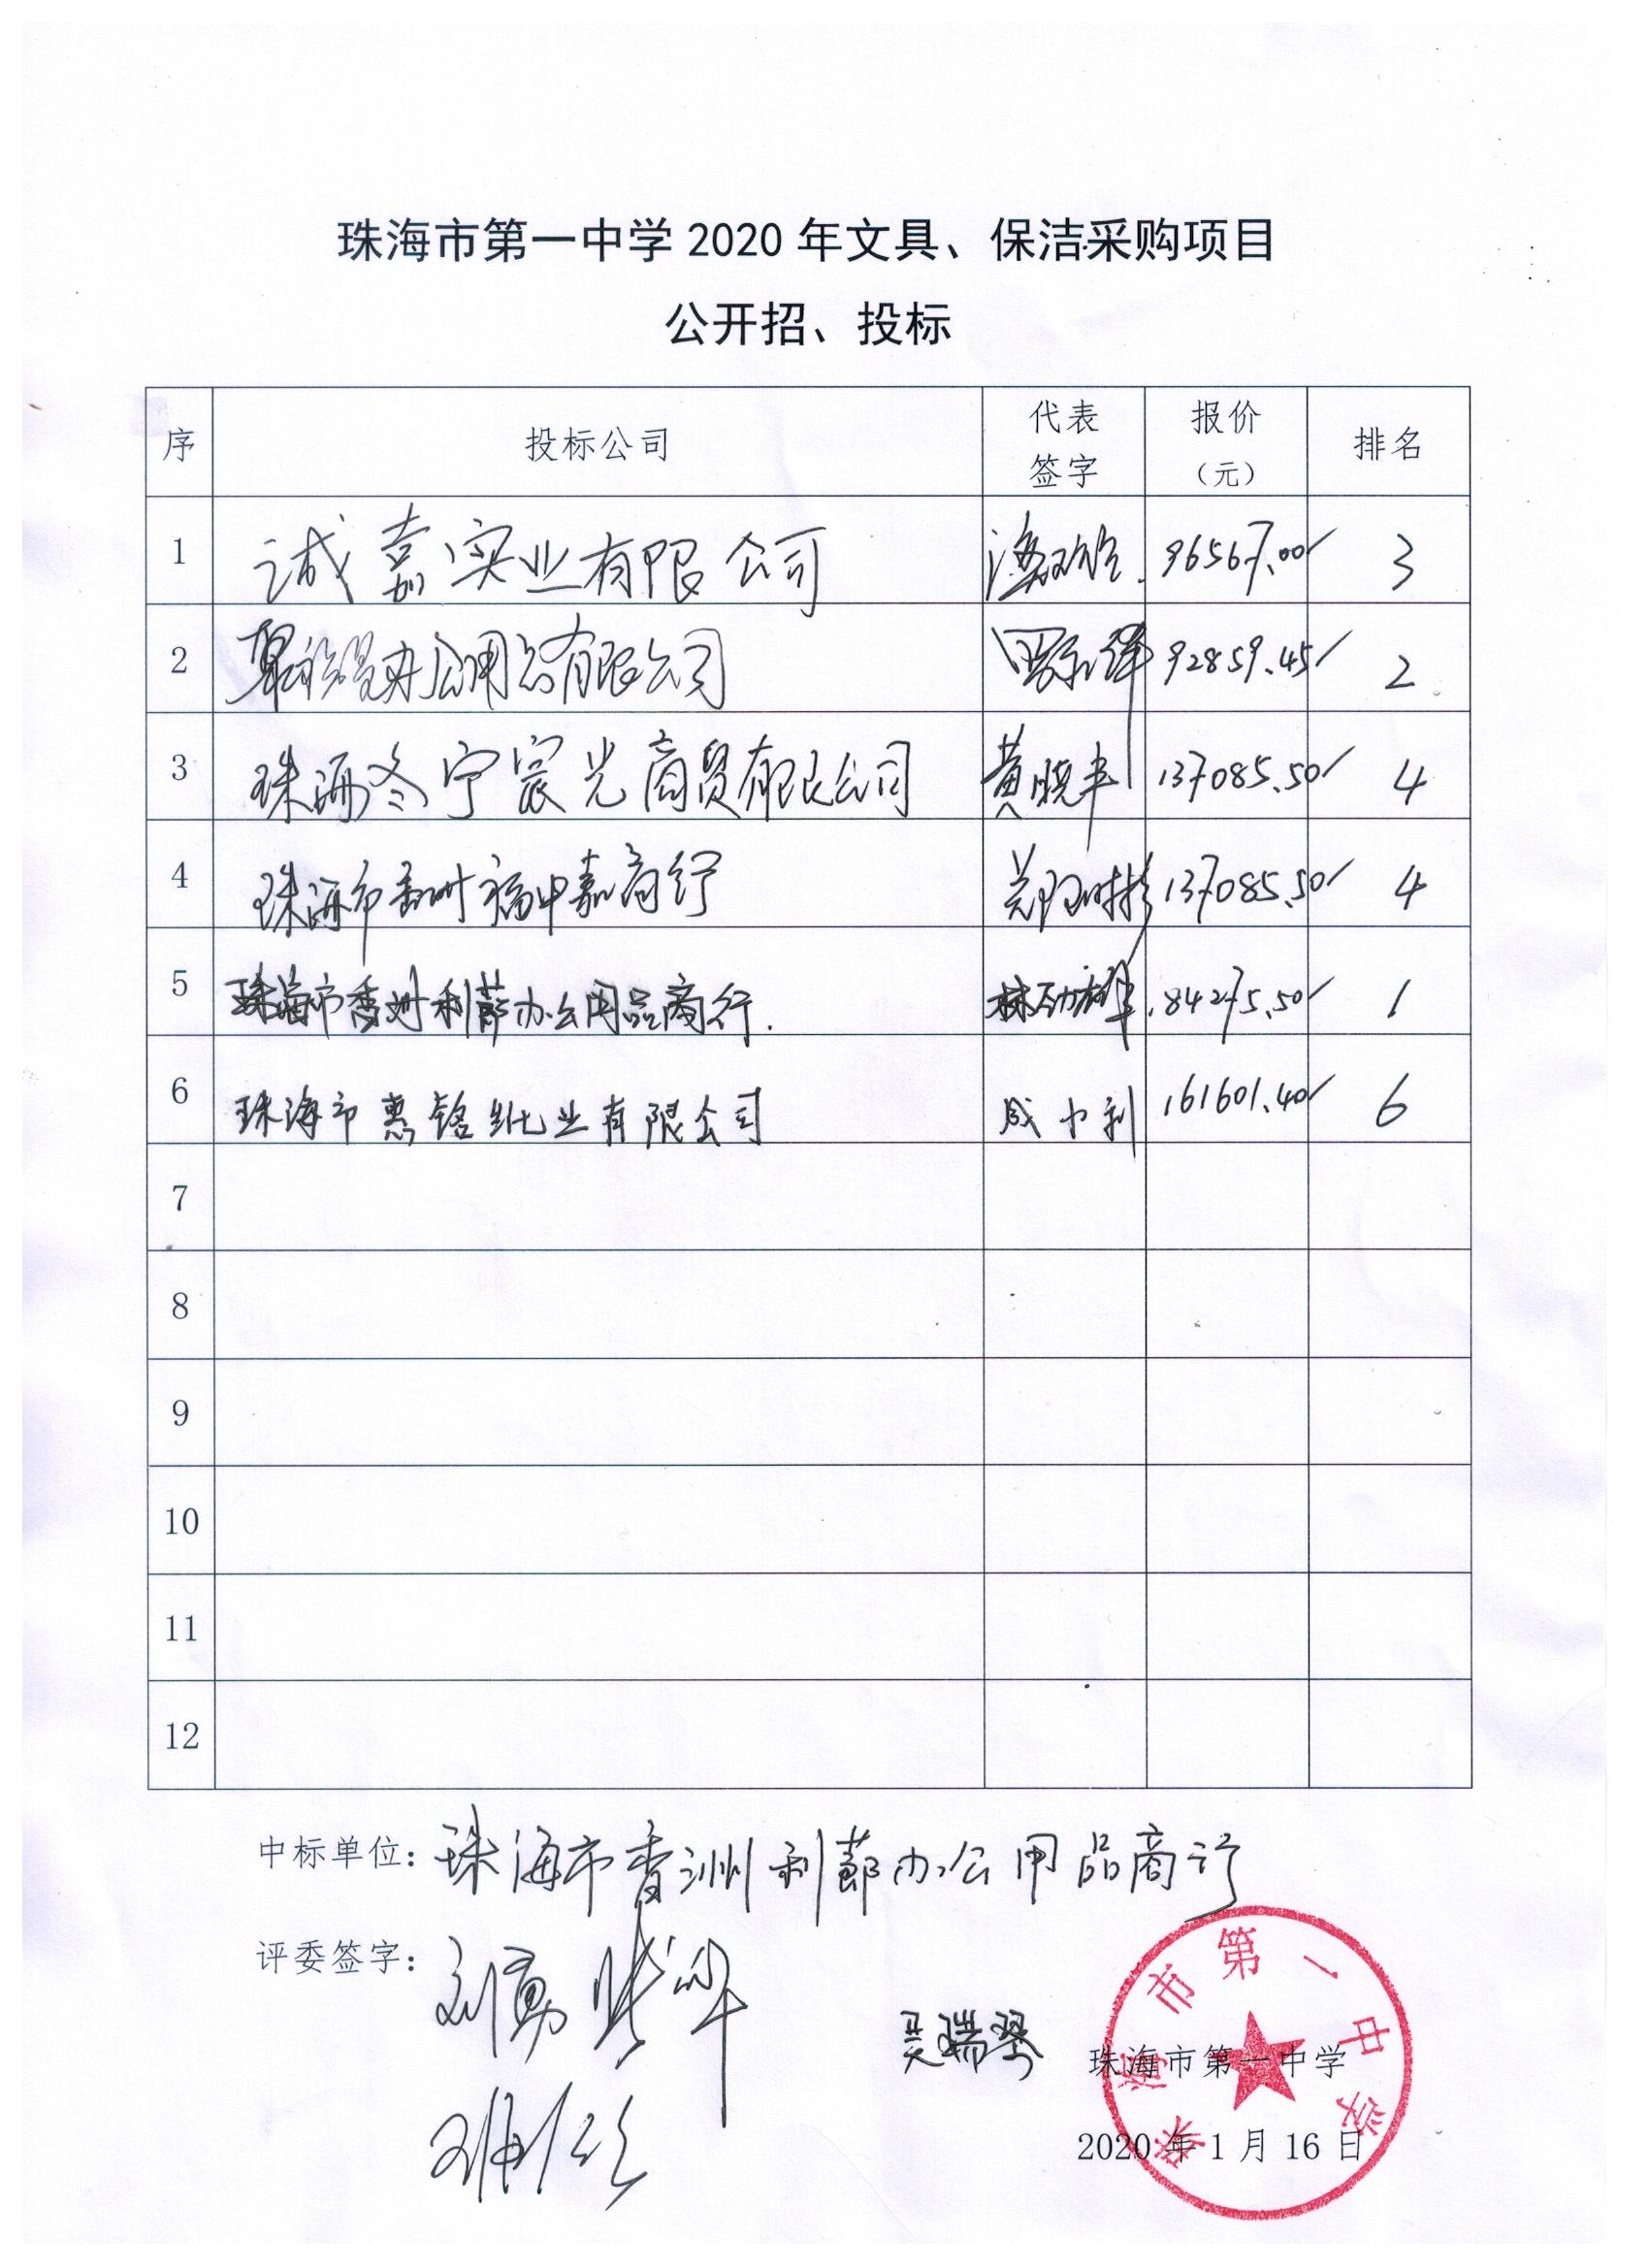 珠海市第一中学 2020 年文具、保洁采购项目
公开招、投标
序 投标公司 代表签字 报价（元） 排名
1 诚嘉实业有限公司 96567.00 3
2 办公用品有限公司 92859.45 2
3 珠海冬宁宸光商贸有限公司 黄晓丰 137085.50 4
4 珠海市香洲福中嘉商行 137085.50 4
5 珠海市香洲利蔀办公用品商行. 84275.50 1
6 珠海市惠铭纸业有限公司 成小利 161601.40 6
7
8
9
10
11
12
中标单位：珠海市香洲利蔀办公用品商行
评委签字：刘勇
吴瑞琴
珠海市第一中学
珠海市第一中学
2020 年 1 月 16 日